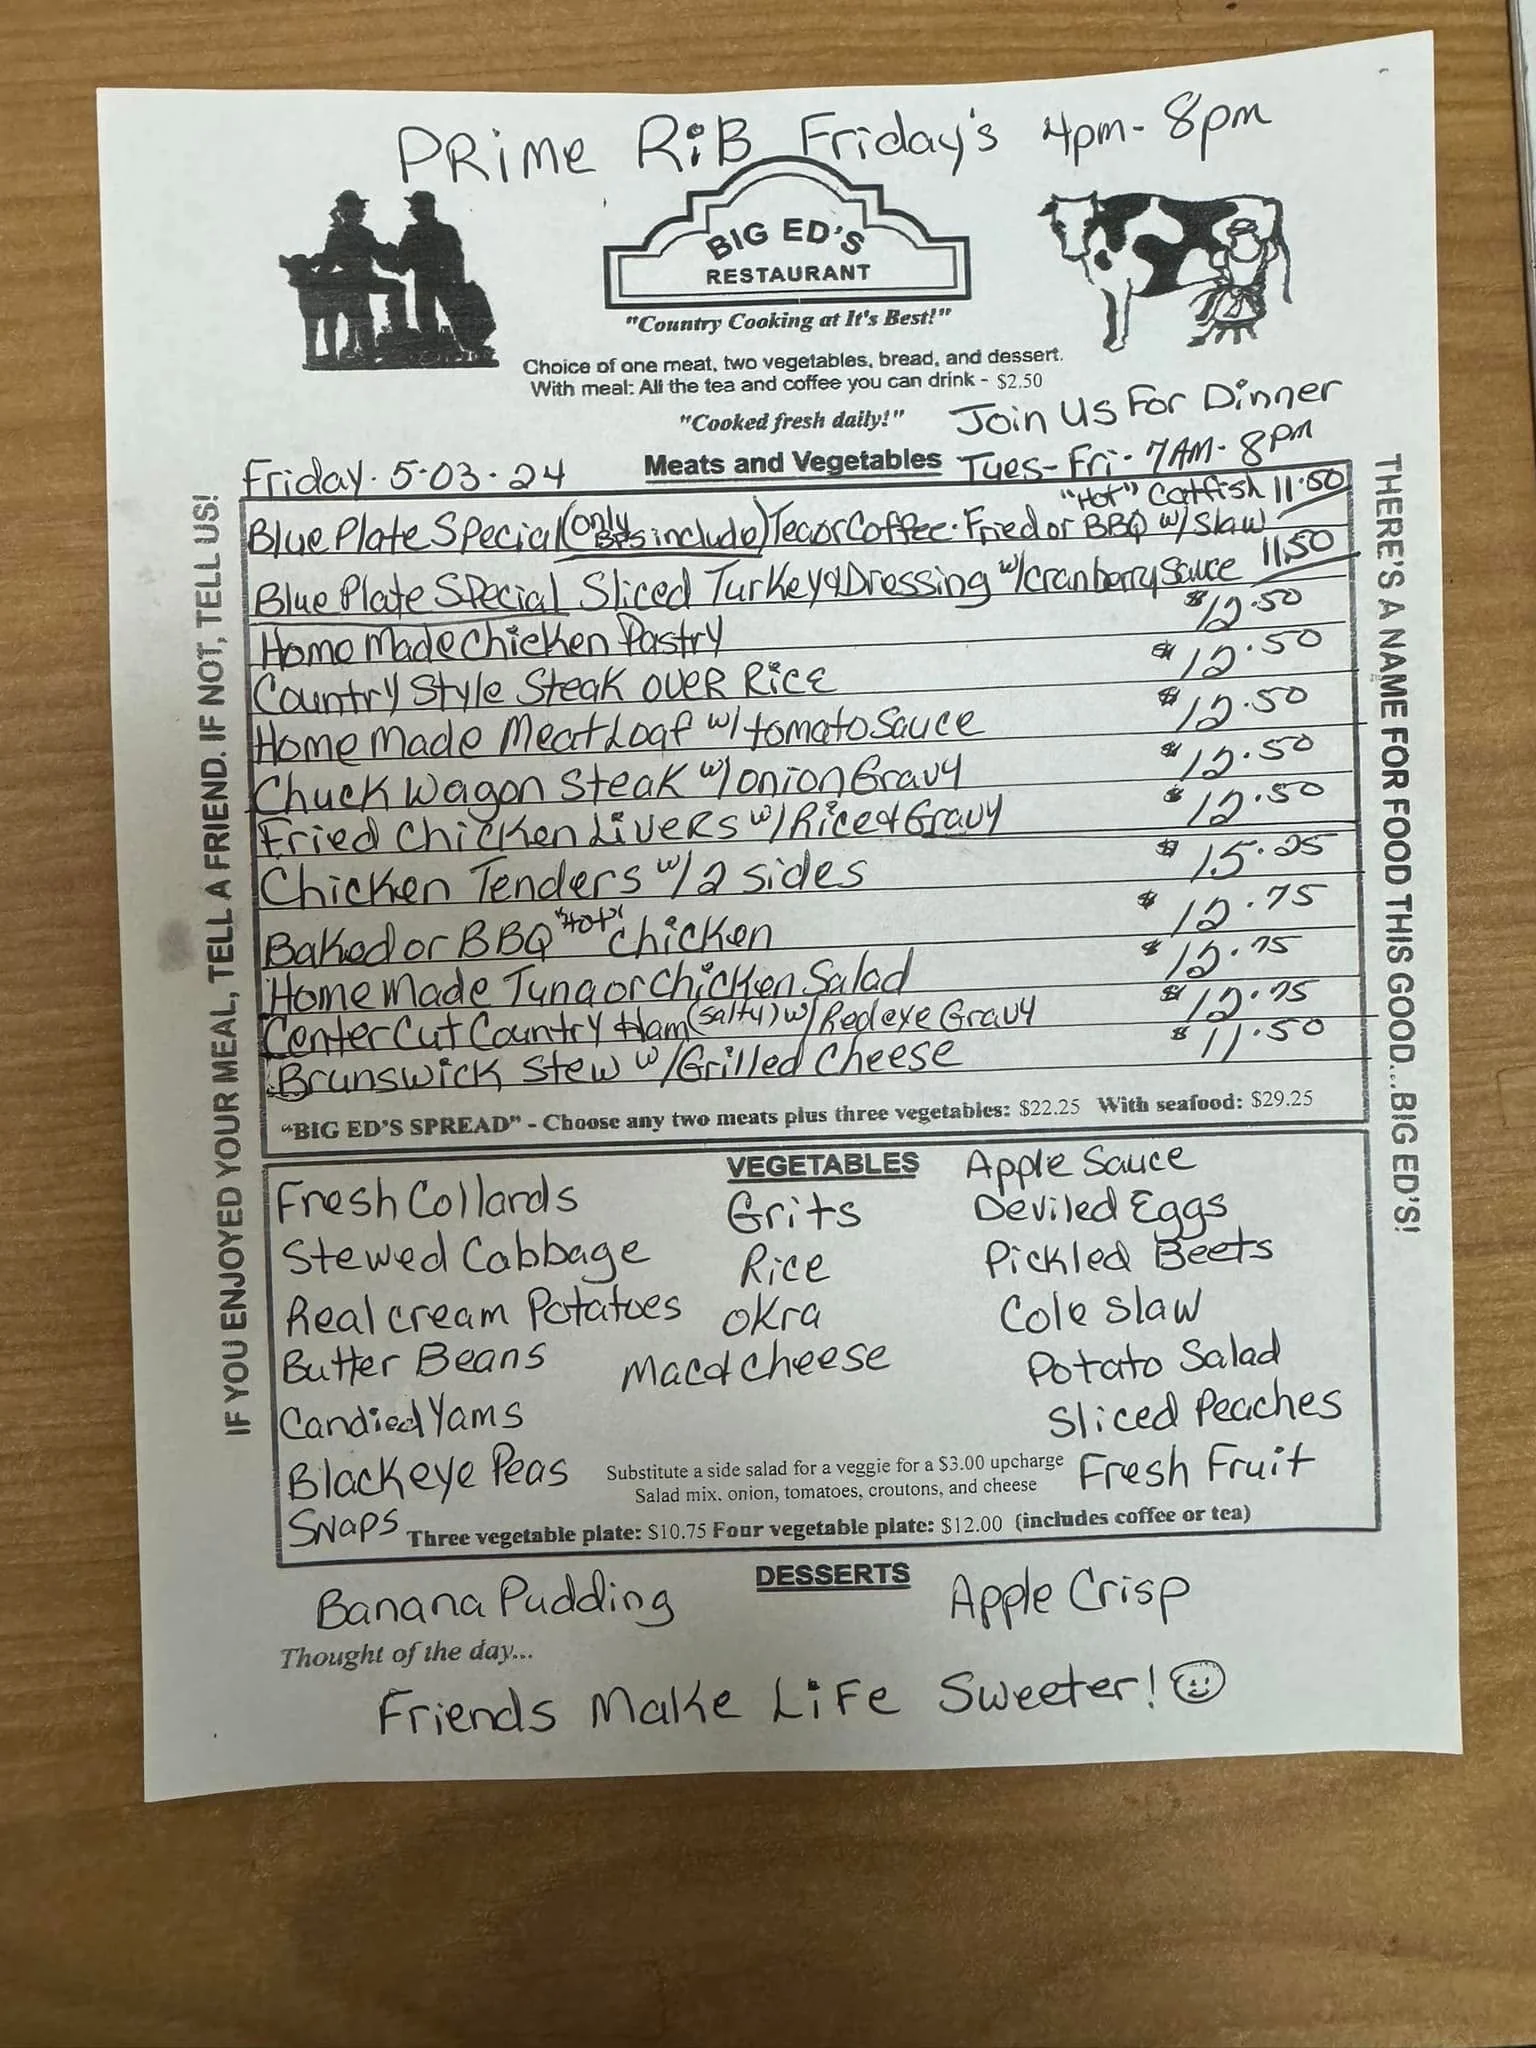 PRime RiB Friday's 4pm-8pm
BIG ED'S
RESTAURANT
"Country Cooking at It's Best!"
Choice of one meat, two vegetables, bread, and dessert.
With meal: All the tea and coffee you can drink - $2.50
"Cooked fresh daily!"
Join Us For Dinner
Tues-Fri. 7AM-8pm
Friday. 5-03-24
Meats and Vegetables
Blue Plate Special (only BPS include) Tea or Coffee. Fried or BBQ "Hot" Catfish w/Slaw 11.50
Blue Plate Special Sliced Turkey & Dressing w/cranberry Sauce 11.50
Home Made Chicken Pastry $12.50
Country Style Steak over Rice $12.50
Home Made Meat Loaf w/tomato Sauce $12.50
Chuck Wagon Steak w/onion Gravy $12.50
Fried Chicken Livers w/Rice & Gravy $12.50
Chicken Tenders w/2 sides $15.25
Baked or BBQ "Hot" Chicken $12.75
Home Made Tuna or Chicken Salad $12.75
Center Cut Country Ham (salty) w/Redeye Gravy $12.75
Brunswick Stew w/Grilled Cheese $11.50
"BIG ED'S SPREAD" - Choose any two meats plus three vegetables: $22.25 With seafood: $29.25
VEGETABLES
Fresh Collards
Stewed Cabbage
Real cream Potatoes
Butter Beans
Candied Yams
Blackeye Peas
Snaps
Grits
Rice
Okra
Mac & Cheese
Apple Sauce
Deviled Eggs
Pickled Beets
Cole Slaw
Potato Salad
Sliced Peaches
Fresh Fruit
Substitute a side salad for a veggie for a $3.00 upcharge
Salad mix, onion, tomatoes, croutons, and cheese
Three vegetable plate: $10.75 Four vegetable plate: $12.00 (includes coffee or tea)
DESSERTS
Banana Pudding
Apple Crisp
Thought of the day...
Friends Make Life Sweeter!
IF YOU ENJOYED YOUR MEAL, TELL A FRIEND. IF NOT, TELL US!
THERE'S A NAME FOR FOOD THIS GOOD...BIG ED'S!